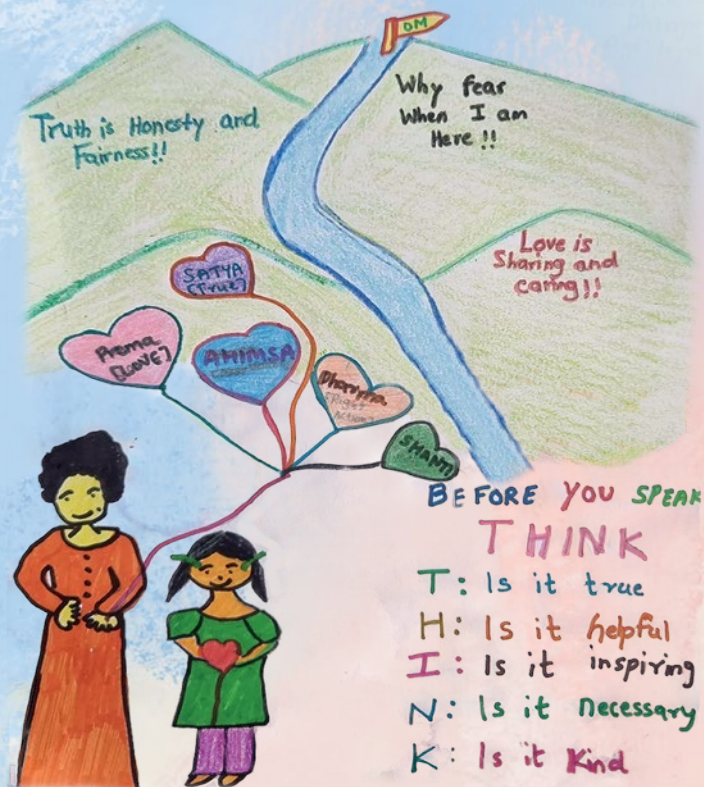 OM
Why fear
When I am
Here !!
Truth is Honesty and
Fairness!!
Love is
Sharing and
caring!!
SATYA
[True]
Prema
[LOVE]
AHIMSA
Dharma
[Right
Action]
SHANTI
BEFORE YOU SPEAK
THINK
T: Is it true
H: Is it helpful
I: Is it inspiring
N: Is it necessary
K: Is it Kind